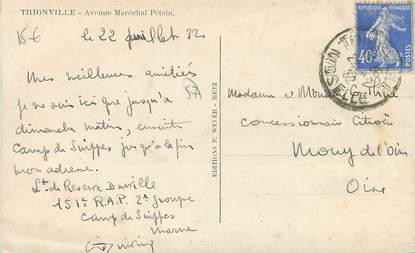 THIONVILLE – Avenue Maréchal Pétain.
15€
le 22 juillet 32
Mes meilleures amitiés
je ne suis ici que jusqu'à
dimanche matin, ensuite
Camp de Suippes jusqu'à la fin
mon adresse.
Lt de Réserve
151e R.A.P. 2e groupe
Camp de Suippes
Marne
EDITIONS F. WEYER – METZ
RÉPUBLIQUE FRANÇAISE
40c
POSTES
MOSELLE
Madame & Monsieur
concessionnaire Citroën
Mouy de l'Oise
Oise